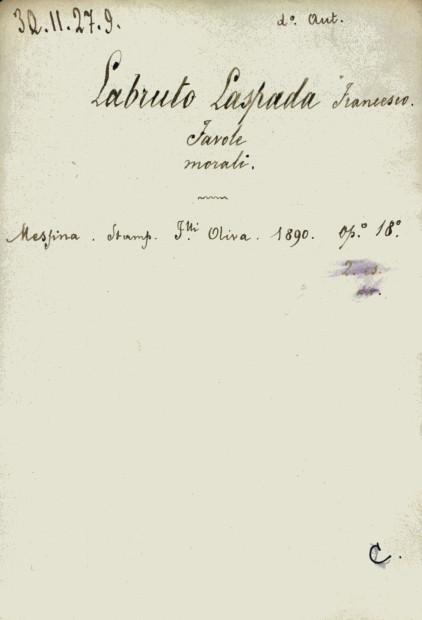 32.11.27.9.
d.º Aut.
Labruto Laspada Francesco.
Favole
morali.
Messina. Stamp. F.lli Oliva. 1890. op.º 18.º
2. es.
C.